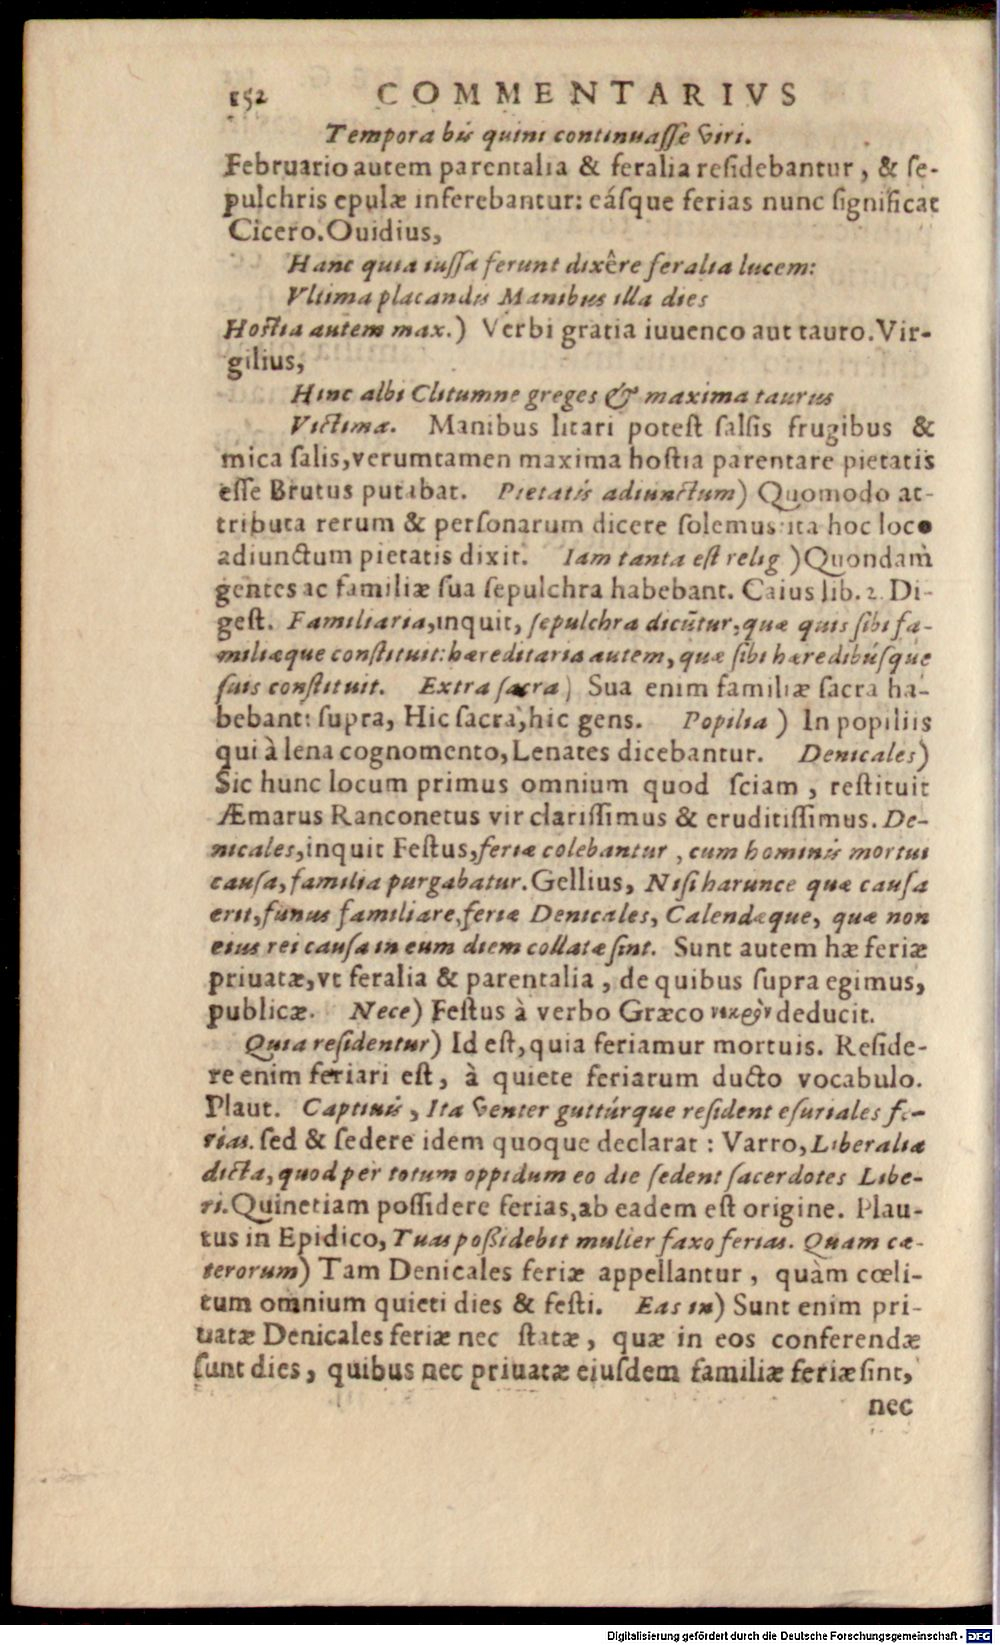 152 COMMENTARIVS
Tempora bis quini continuaſſe viri.
Februario autem parentalia & feralia reſidebantur, & ſe-
pulchris epulæ inferebantur: eáſque ferias nunc ſignificat
Cicero. Ouidius,
Hanc quia iuſſa ferunt dixêre feralia lucem:
Vltima placandis Manibus illa dies
Hoſtia autem max.) Verbi gratia iuuenco aut tauro. Vir-
gilius,
Hinc albi Clitumne greges & maxima taurus
Victima. Manibus litari poteſt ſalſis frugibus &
mica ſalis, verumtamen maxima hoſtia parentare pietatis
eſſe Brutus putabat. Pietatis adiunctum) Quomodo at-
tributa rerum & perſonarum dicere ſolemus: ita hoc loco
adiunctum pietatis dixit. Iam tanta eſt relig.) Quondam
gentes ac familiæ ſua ſepulchra habebant. Caius lib. 2. Di-
geſt. Familiaria, inquit, ſepulchra dicūtur, quæ quis ſibi fa-
miliæque conſtituit: hæreditaria autem, quæ ſibi hæredibúſque
ſuis conſtituit. Extra ſacra) Sua enim familiæ ſacra ha-
bebant: ſupra, Hic ſacra, hic gens. Popilia) In popiliis
qui à lena cognomento, Lenates dicebantur. Denicales)
Sic hunc locum primus omnium quod ſciam, reſtituit
Æmarus Ranconetus vir clariſſimus & eruditiſſimus. De-
nicales, inquit Feſtus, feriæ colebantur, cum hominis mortui
cauſa, familia purgabatur. Gellius, Niſi harunce quæ cauſa
erit, funus familiare, feriæ Denicales, Calendæque, quæ non
eius rei cauſa in eum diem collatæ ſint. Sunt autem hæ feriæ
priuatæ, vt feralia & parentalia, de quibus ſupra egimus,
publicæ. Nece) Feſtus à verbo Græco νεκρὸν deducit.
Quia reſidentur) Id eſt, quia feriamur mortuis. Reſide-
re enim feriari eſt, à quiete feriarum ducto vocabulo.
Plaut. Captiuis, Ita venter guttúrque reſident eſuriales fe-
rias. ſed & ſedere idem quoque declarat: Varro, Liberalia
dicta, quod per totum oppidum eo die ſedent ſacerdotes Libe-
ri. Quinetiam poſſidere ferias, ab eadem eſt origine. Plau-
tus in Epidico, Tuas poßidebit mulier faxo ferias. Quam cæ-
terorum) Tam Denicales feriæ appellantur, quàm cœli-
tum omnium quieti dies & feſti. Eas in) Sunt enim pri-
uatæ Denicales feriæ nec ſtatæ, quæ in eos conferendæ
ſunt dies, quibus nec priuatæ eiuſdem familiæ feriæ ſint,
nec
Digitalisierung gefördert durch die Deutsche Forschungsgemeinschaft - DFG